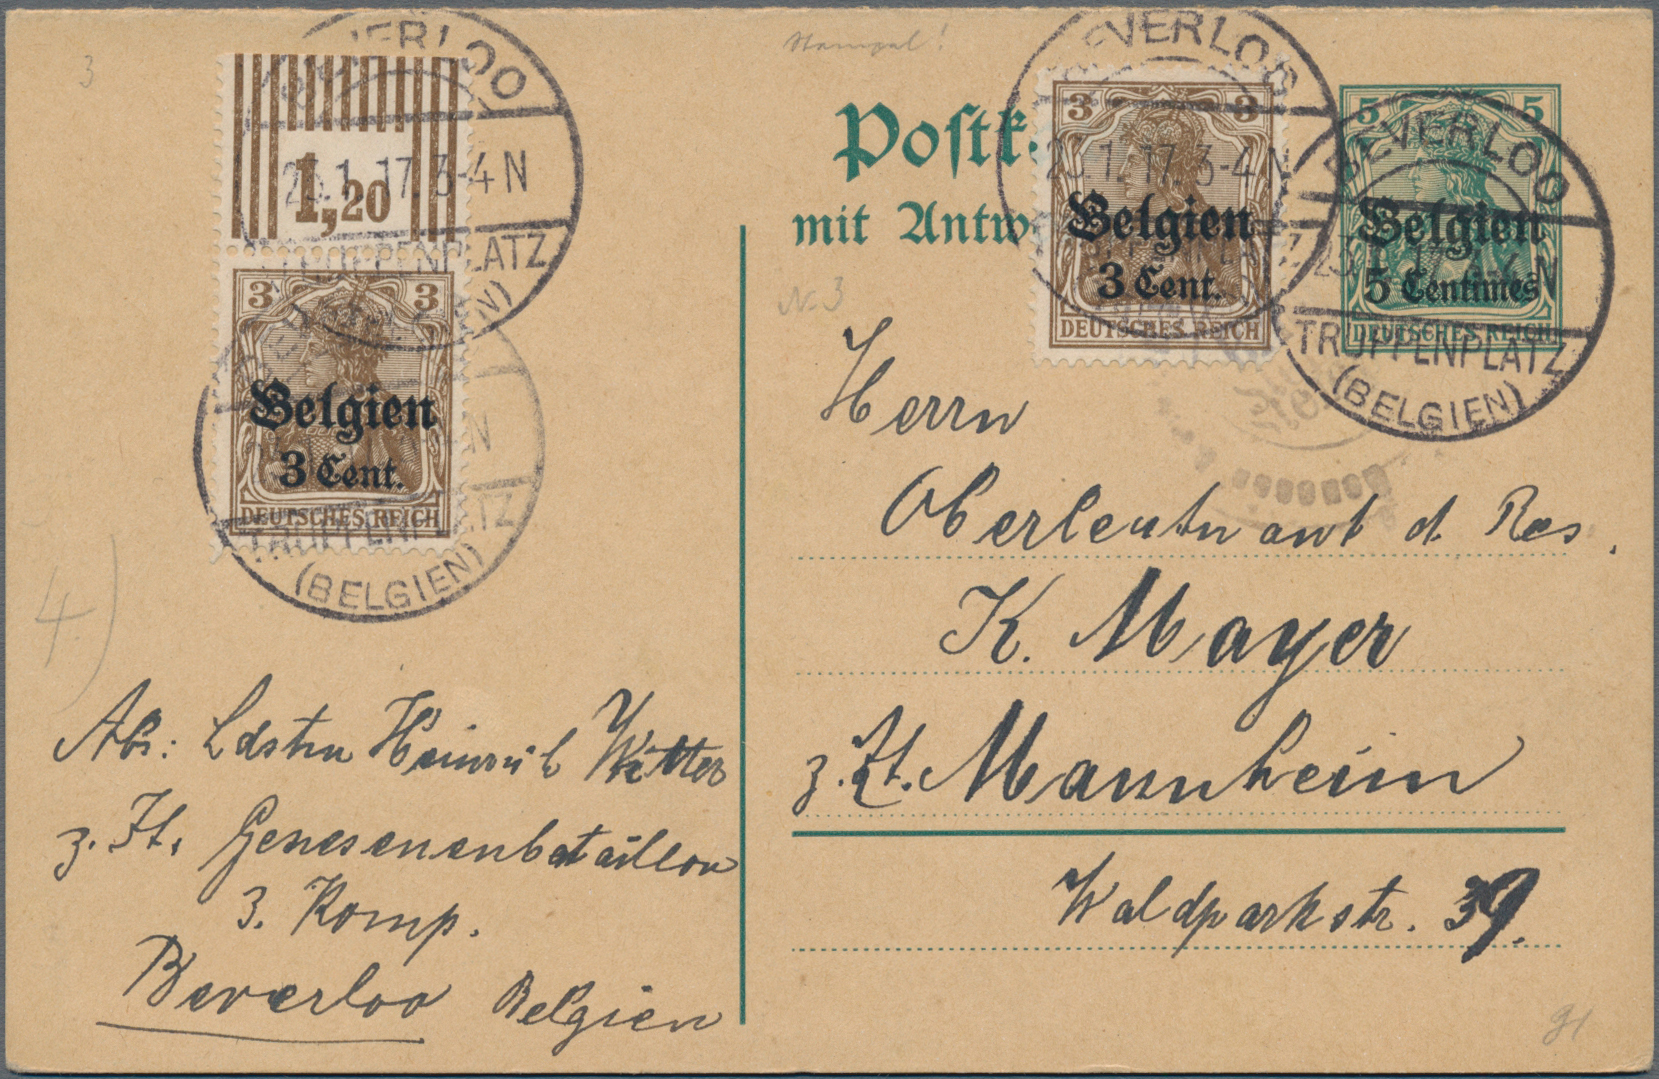 3
Stempel!
BEVERLOO
23.1.17.3-4N
TRUPPENPLATZ
(BELGIEN)
1,20
3 3
Belgien
3 Cent.
DEUTSCHES REICH
BEVERLOO
TRUPPENPLATZ
(BELGIEN)
Postk
mit Antw
BEVERLOO
23.1.17.3-4N
3 3
Belgien
3 Cent.
DEUTSCHES REICH
5 5
BEVERLOO
Belgien
5 Centimes
DEUTSCHES REICH
TRUPPENPLATZ
(BELGIEN)
N. 3
Herrn
Oberleutnant d. Res.
K. Mayer
z. Zt. Mannheim
Waldparkstr. 39.
4.)
Abs: Ldstm Heinrich Witter
z. Zt. Genesenenbataillon
3. Komp.
Beverloo Belgien